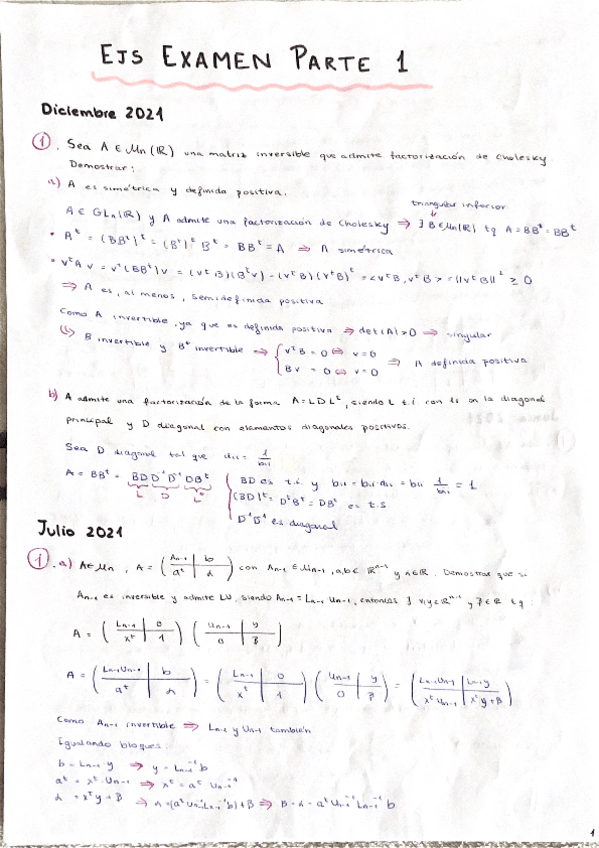 EJS EXAMEN PARTE 1
Diciembre 2021
1. Sea A ∈ Mn(ℝ) una matriz inversible que admite factorización de Cholesky
Demostrar:
a) A es simétrica y definida positiva.
triangular inferior
A ∈ GLn(ℝ) y A admite una factorización de Cholesky ⇒ ∃ B ∈ Mn(ℝ) tq A = BBᵗ = BBᵗ
• Aᵗ = (BBᵗ)ᵗ = (Bᵗ)ᵗ Bᵗ = BBᵗ = A ⇒ A simétrica
• vᵗAv = vᵗ(BBᵗ)v = (vᵗB)(Bᵗv) = (vᵗB)(vᵗB)ᵗ = <vᵗB, vᵗB> = ||vᵗB||² ≥ 0
⇒ A es, al menos, semidefinida positiva
Como A invertible, ya que es definida positiva ⇒ det(A)>0 ⇒ singular
B invertible y Bᵗ invertible ⇒ { vᵗB = 0 ⇔ v=0
Bv = 0 ⇔ v=0 ⇒ A definida positiva
b) A admite una factorización de la forma A = LDLᵗ, siendo L t.i con 1s en la diagonal
principal y D diagonal con elementos diagonales positivos.
Sea D diagonal tal que dii = 1/bii
A = BBᵗ = BD D⁻¹D⁻¹ DBᵗ { BD es t.i. y bii = bii·dii = bii 1/bii = 1
L D Lᵗ (BD)ᵗ = DᵗBᵗ = DBᵗ es t.s
D⁻¹D⁻¹ es diagonal
Julio 2021
1. a) A∈Mn, A = (An-1 | b / aᵗ | α) con An-1 ∈ Mn-1, a,b ∈ ℝⁿ⁻¹ y α∈ℝ. Demostrar que si
An-1 es inversible y admite LU, siendo An-1 = Ln-1 Un-1, entonces ∃ x,y∈ℝⁿ⁻¹, y β∈ℝ tq:
A = (Ln-1 | 0 / xᵗ | 1) (Un-1 | y / 0 | β)
A = (Ln-1Un-1 | b / aᵗ | α) = (Ln-1 | 0 / xᵗ | 1) (Un-1 | y / 0 | β) = (Ln-1Un-1 | Ln-1y / xᵗUn-1 | xᵗy+β)
Como An-1 invertible ⇒ Ln-1 y Un-1 también
Igualando bloques:
b = Ln-1 y ⇒ y = Ln-1⁻¹b
aᵗ = xᵗ Un-1 ⇒ xᵗ = aᵗ Un-1⁻¹
α = xᵗy + β ⇒ α = (aᵗUn-1⁻¹Ln-1⁻¹b) + β ⇒ β = α - aᵗUn-1⁻¹Ln-1⁻¹b
1